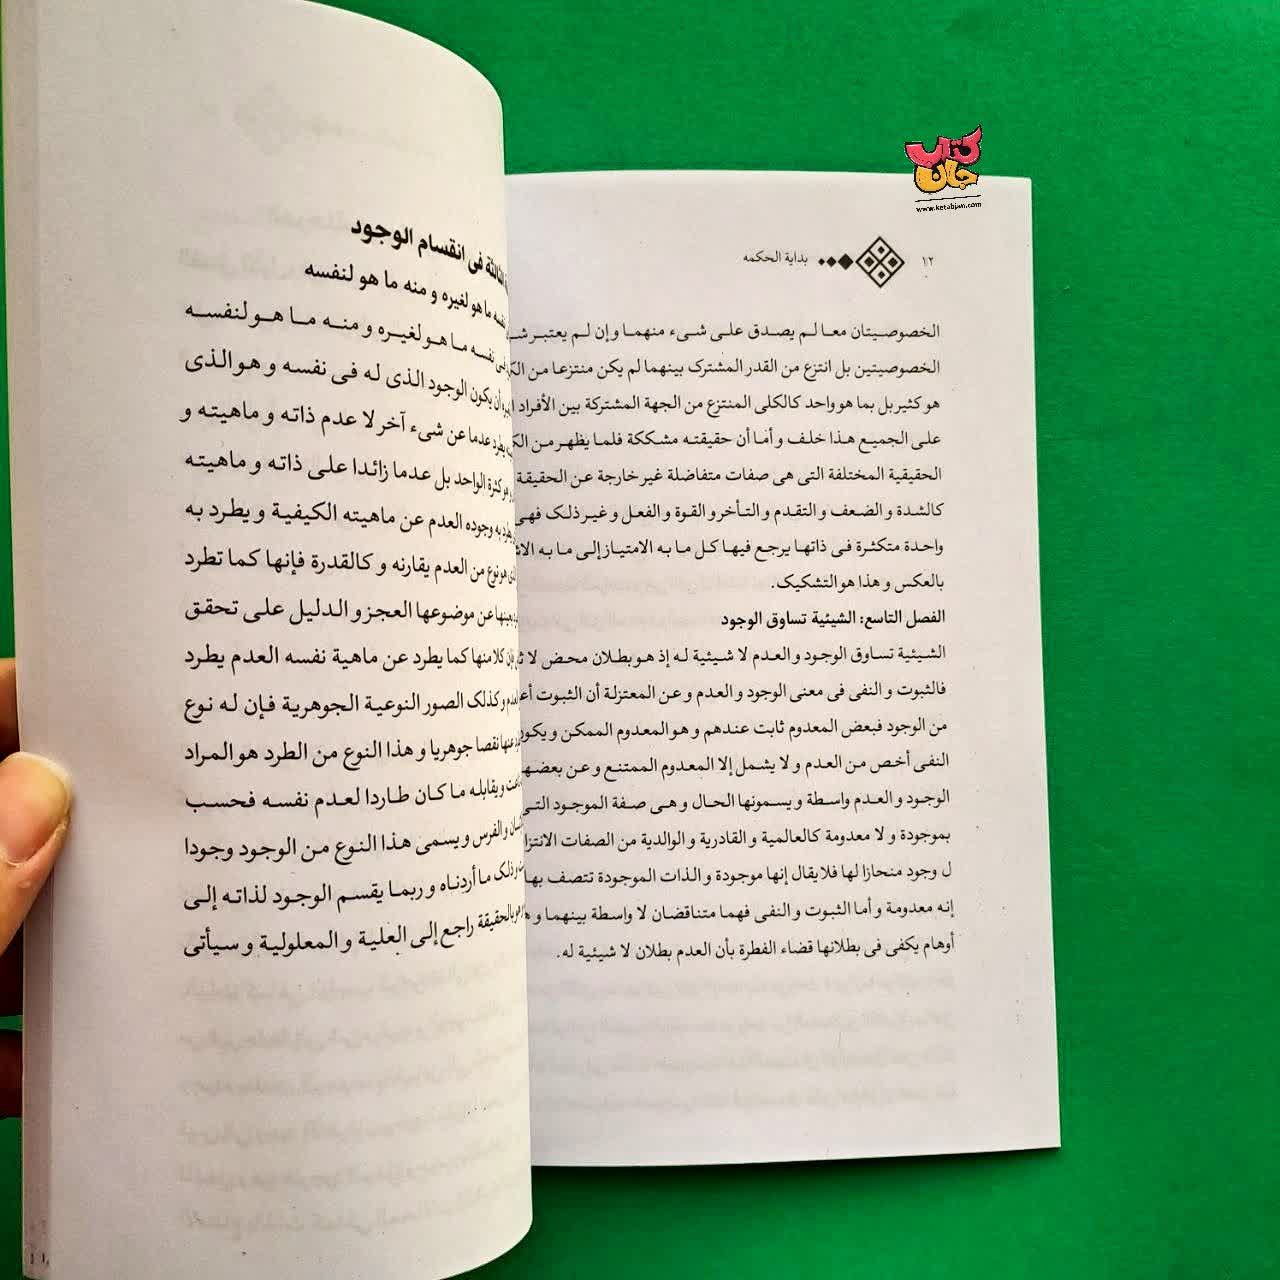 کتاب
جان
www.ketabjan.com
١٢
بداية الحكمه
الخصوصيتان معا لم يصدق على شیء منهما وإن لم يعتبر
الخصوصيتين بل انتزع من القدر المشترک بينهما لم يكن منتزعا من
هو كثير بل بما هو واحد كالكلى المنتزع من الجهة المشتركة بين الأفراد
على الجميع هذا خلف و أما أن حقيقته مشككة فلما يظهر من
الحقيقية المختلفة التى هى صفات متفاضلة غير خارجة عن الحقيقة
كالشدة و الضعف و التقدم و التأخر و القوة و الفعل و غير ذلک فهى
واحدة متكثرة فى ذاتها يرجع فيها كل ما به الامتياز إلى ما به
بالعكس و هذا هو التشكيک.
الفصل التاسع: الشيئية تساوق الوجود
الشيئية تساوق الوجود و العدم لا شيئية له إذ هو بطلان محض لا
فالثبوت و النفى فى معنى الوجود و العدم و عن المعتزلة أن الثبوت
من الوجود فبعض المعدوم ثابت عندهم و هو المعدوم الممكن و
النفى أخص من العدم و لا يشمل إلا المعدوم الممتنع و عن بعضهم
الوجود و العدم واسطة و يسمونها الحال و هى صفة الموجود التى
بموجودة و لا معدومة كالعالمية و القادرية و الوالدية من الصفات
ل وجود منحازا لها فلا يقال إنها موجودة و الذات الموجودة تتصف بها
إنه معدومة و أما الثبوت و النفى فهما متناقضان لا واسطة بينهما و
أوهام يكفى فى بطلانها قضاء الفطرة بأن العدم بطلان لا شيئية له.
الثالثة فى انقسام الوجود
نفسه ما هو لغيره و منه ما هو لنفسه
فى نفسه ما هو لغيره و منه ما هو لنفسه
أن يكون الوجود الذى له فى نفسه و هو الذى
يطرد عدما عن شیء آخر لا عدم ذاته و ماهيته و
كثرة الواحد بل عدما زائدا على ذاته و ماهيته
به وجوده العدم عن ماهيته الكيفية و يطرد به
هو نوع من العدم يقارنه و كالقدرة فإنها كما تطرد
بعينها عن موضوعها العجز و الدليل على تحقق
فإن كلا منها كما يطرد عن ماهية نفسه العدم يطرد
و كذلک الصور النوعية الجوهرية فإن له نوع
عنها نقصا جوهريا و هذا النوع من الطرد هو المراد
و يقابله ما كان طاردا لعدم نفسه فحسب
و الفرس و يسمى هذا النوع من الوجود وجودا
ما أردناه و ربما يقسم الوجود لذاته إلى
بالحقيقة راجع إلى العلية و المعلولية و سيأتى